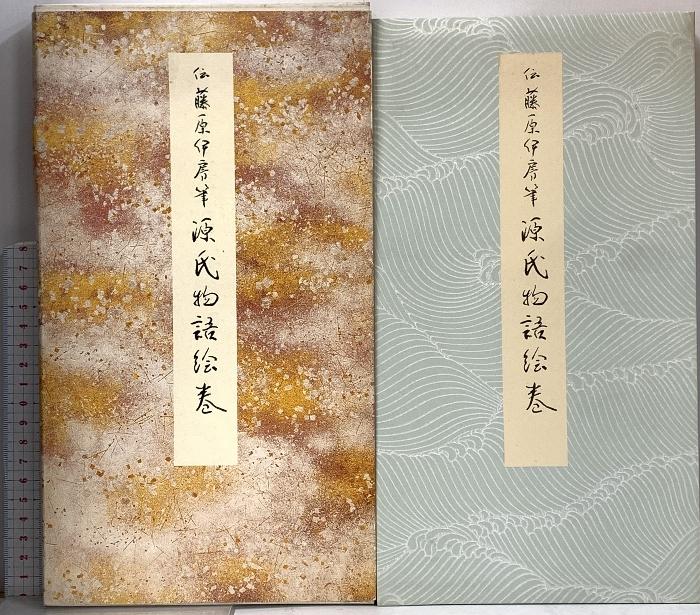 伝藤原伊房筆 源氏物語絵巻
伝藤原伊房筆 源氏物語絵巻